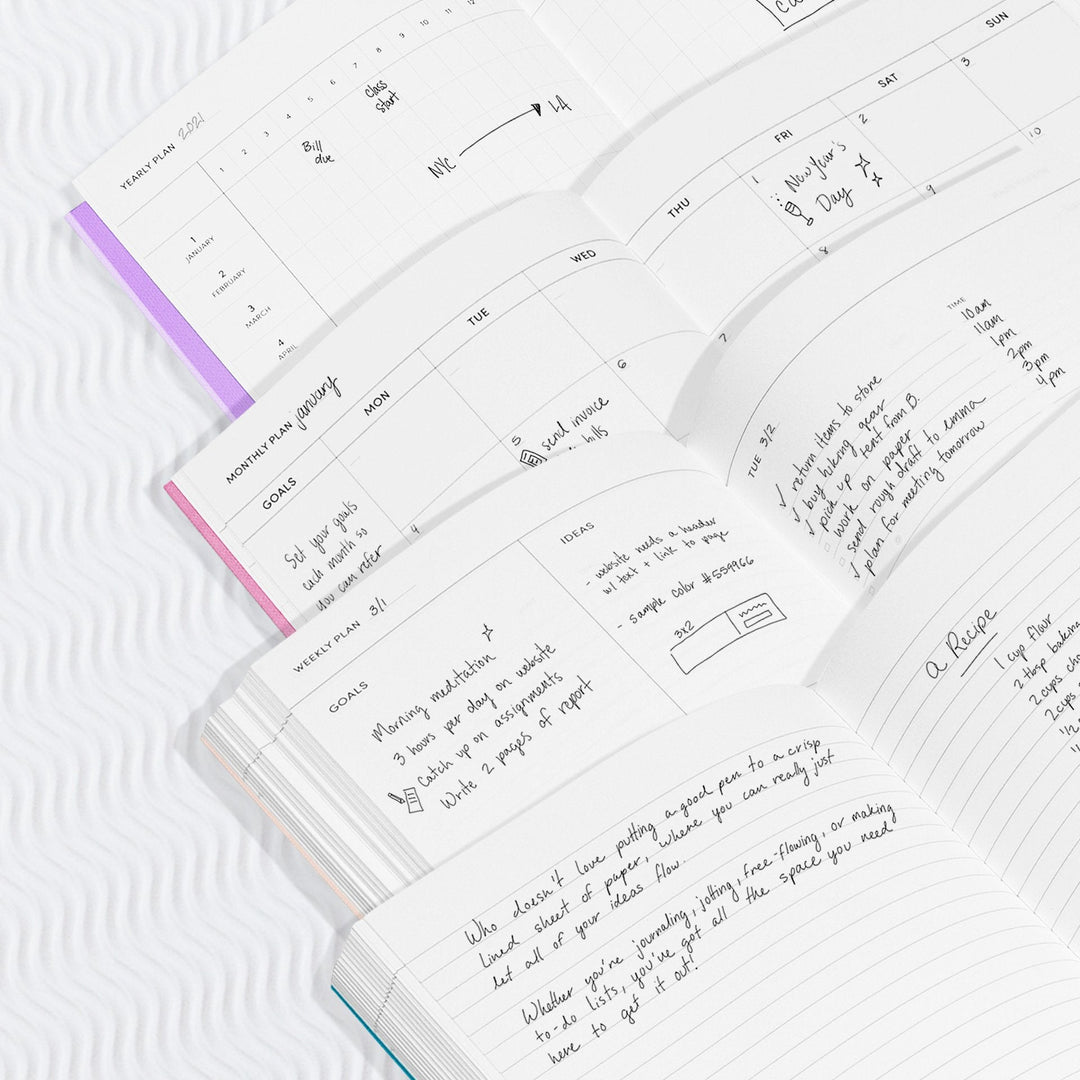 YEARLY PLAN 2021
1 2 3 4 5 6 7 8 9 10 11 12
Bill
due
Class
start
NYC
LA
1
JANUARY
2
FEBRUARY
3
MARCH
4
APRIL
MONTHLY PLAN january
GOALS
MON
TUE
WED
THU
FRI
SAT
SUN
Set your goals
each month so
you can refer
4
5
send invoice
bills
6
7
1
New Year's
Day
2
3
8
9
10
WEEKLY PLAN 3/1
GOALS
Morning meditation
3 hours per day on website
Catch up on assignments
Write 2 pages of report
IDEAS
- website needs a header
w/ text + link to page
- sample color #559966
3x2
TUE 3/2
TIME
return items to store 10am
buy hiking gear 11am
pick up tent from B. 1pm
work on paper 2pm
send rough draft to emma 3pm
plan for meeting tomorrow 4pm
Who doesn't love putting a good pen to a crisp
lined sheet of paper, where you can really just
let all of your ideas flow.
Whether you're journaling, jotting, free-flowing, or making
to-do lists, you've got all the space you need
here to get it out!
a Recipe
1 cup flour
2 tbsp baking
2 cups
2 cups